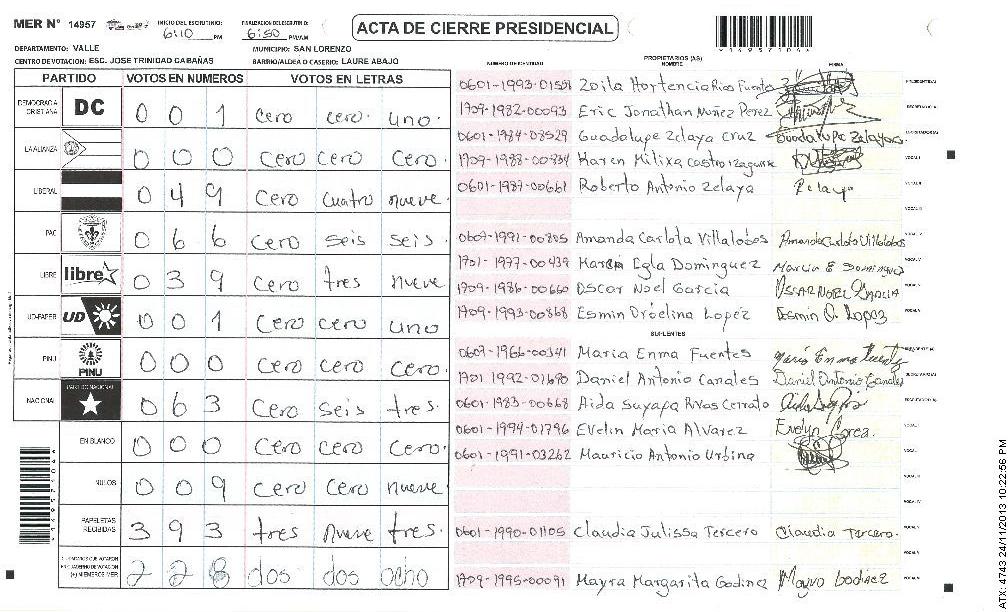 MER N° 14957 INICIO DEL ESCRUTINIO: 6:10 PM FINALIZACION DEL ESCRUTINIO: 6:50 PM/AM ACTA DE CIERRE PRESIDENCIAL
DEPARTAMENTO: VALLE MUNICIPIO: SAN LORENZO
CENTRO DE VOTACION: ESC. JOSE TRINIDAD CABAÑAS BARRIO/ALDEA O CASERIO: LAURE ABAJO
PARTIDO VOTOS EN NUMEROS VOTOS EN LETRAS
DEMOCRACIA CRISTIANA DC 0 0 1 cero cero uno
LA ALIANZA 0 0 0 Cero Cero Cero.
LIBERAL 0 4 9 Cero Cuatro nueve.
PAC 0 6 6 Cero seis seis.
LIBRE libre 0 3 9 Cero tres nueve
UD-FAPER UD 0 0 1 Cero Cero uno
PINU PINU 0 0 0 Cero Cero Cero.
NACIONAL PARTIDO NACIONAL 0 6 3 Cero Seis tres.
EN BLANCO 0 0 0 Cero Cero Cero.
NULOS 0 0 9 Cero Cero nueve
PAPELETAS RECIBIDAS 3 9 3 tres nueve tres.
CIUDADANOS QUE VOTARON EN CUADERNO DE VOTACION (+) MIEMBROS MER 2 2 8 dos dos ocho
NUMERO DE IDENTIDAD PROPIETARIOS (AS) NOMBRE FIRMA
Zoila Hortencia Rios Fuentes
1709-1982-00093 Eric Jonathan Nuñez Perez
0601-1984-08529 Guadalupe Zelaya Cruz Guadalupe Zelaya
Karen Milixa Castro Izaguirre
0601-1987-00661 Roberto Antonio Zelaya
Amanda Carlota Villalobos Amanda Carlota Villalobos
1701-1977-00439 Marcia Egla Dominguez Marcia E Dominguez
1709-1986-00660 Oscar Noel Garcia OSCAR NOEL GARCIA
1709-1993-00868 Esmin Orbelina Lopez Esmin O. Lopez
SUPLENTES
Maria Enma Fuentes Maria Enma Fuentes
1701 1992-01690 Daniel Antonio Canales Daniel Antonio Canales
0601-1983-00668 Aida Suyapa Rivas Cerrato
0601-1994-01796 Evelin Maria Alvarez
0601-1991-03262 Mauricio Antonio Urbina
0601-1990-01105 Claudia Julissa Tercero Claudia Tercero.
1709-1995-00091 Mayra Margarita Godinez Mayra Godinez
ATX: 4743 24/11/2013 10:22:56 PM